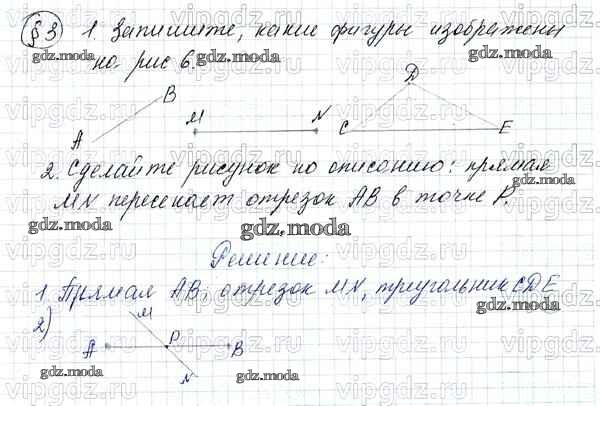 §3 1. Запишите, какие фигуры изображены
на рис 6.
A B M N C D E
2. Сделайте рисунок по описанию: прямая
MN пересекает отрезок AB в точке P.
Решение:
1 Прямая AB, отрезок MN, треугольник CDE
2)
M
A P B
N
gdz.moda
gdz.moda
gdz.moda
gdz.moda
gdz.moda
gdz.moda
gdz.moda
gdz.moda
gdz.moda
gdz.moda
gdz.moda
gdz.moda
vipgdz.ru